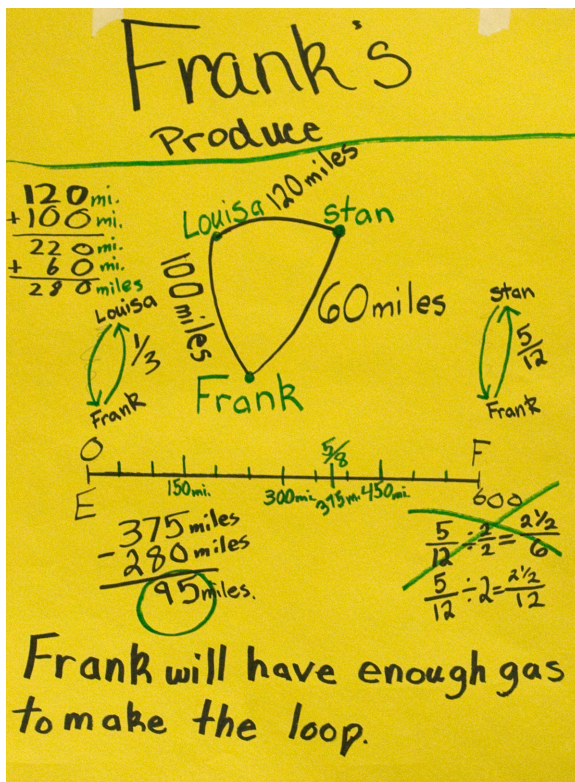 Frank's
Produce
120mi.
+100mi.
220mi.
+ 60mi.
280miles
Louisa
120miles
Stan
100miles
60miles
Frank
Louisa
1/3
Frank
Stan
5/12
Frank
O
5/8
F
E
150mi.
300mi.
375mi.
450mi.
600
375miles
-280miles
95miles.
5/12 ÷ 2/2 = 2½/6
5/12 ÷ 2 = 2½/12
Frank will have enough gas
to make the loop.